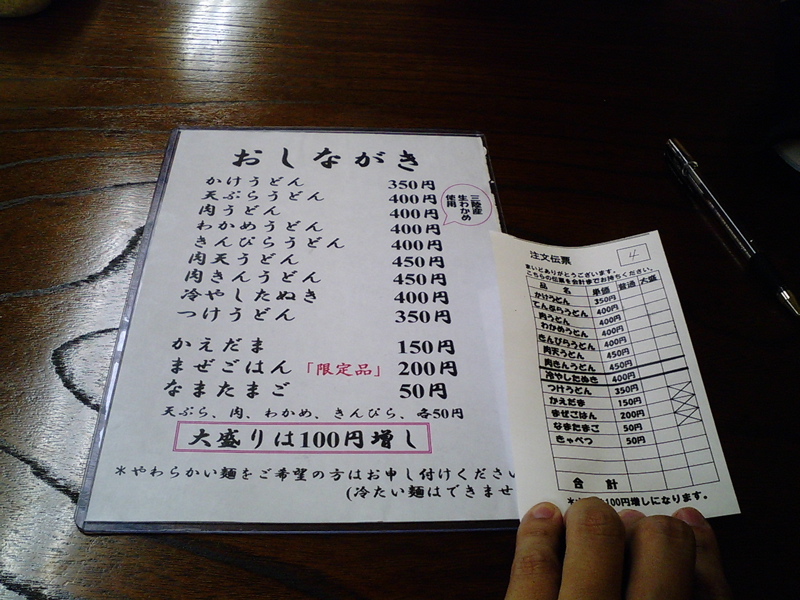 おしながき
かけうどん 350円
天ぷらうどん 400円
肉うどん 400円
わかめうどん 400円
きんぴらうどん 400円
肉天うどん 450円
肉きんうどん 450円
冷やしたぬき 400円
つけうどん 350円
三陸産
生わかめ
使用
かえだま 150円
まぜごはん 「限定品」 200円
なまたまご 50円
天ぷら、肉、わかめ、きんぴら、各50円
大盛りは100円増し
*やわらかい麺をご希望の方はお申し付けください
(冷たい麺はできませ
注文伝票 4
まいどありがとうございます。
こちらの伝票を会計までお持ちください。
品名 単価 普通 大盛
かけうどん 350円
てんぷらうどん 400円
肉うどん 400円
わかめうどん 400円
きんぴらうどん 400円
肉天うどん 450円
肉きんうどん 450円
冷やしたぬき 400円
つけうどん 350円
かえだま 150円
まぜごはん 200円
なまたまご 50円
きゃべつ 50円
合計
100円増しになります。